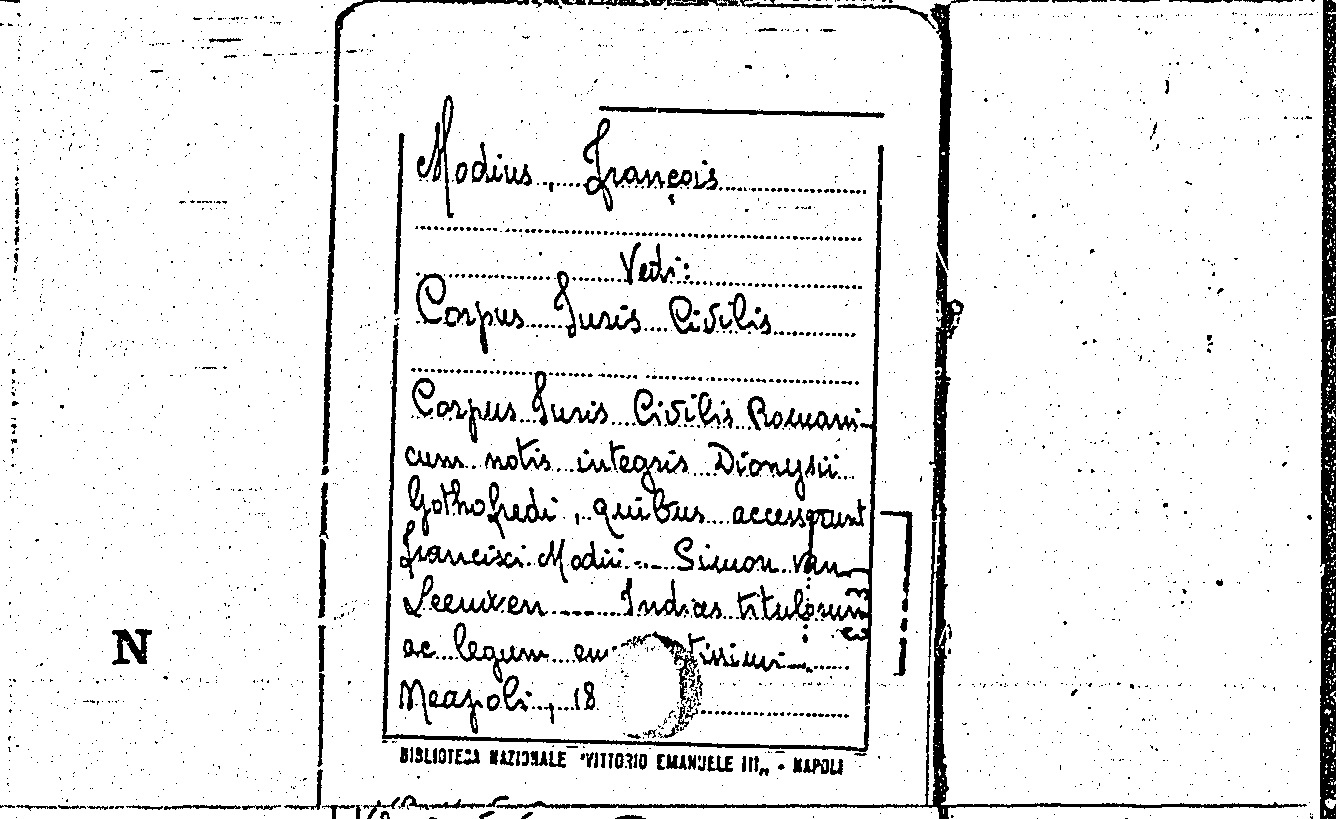 Modius, François
Vedi:
Corpus Juris Civilis
Corpus Juris Civilis Romani-
cum notis integris Dionysii
Gothofredi, quibus accesserunt
Francisci Modii... Simon van
Leeuwen .... Indices titulorum
ac legum
Neapoli, 18
BIBLIOTECA NAZIONALE "VITTORIO EMANUELE III„ - NAPOLI
N